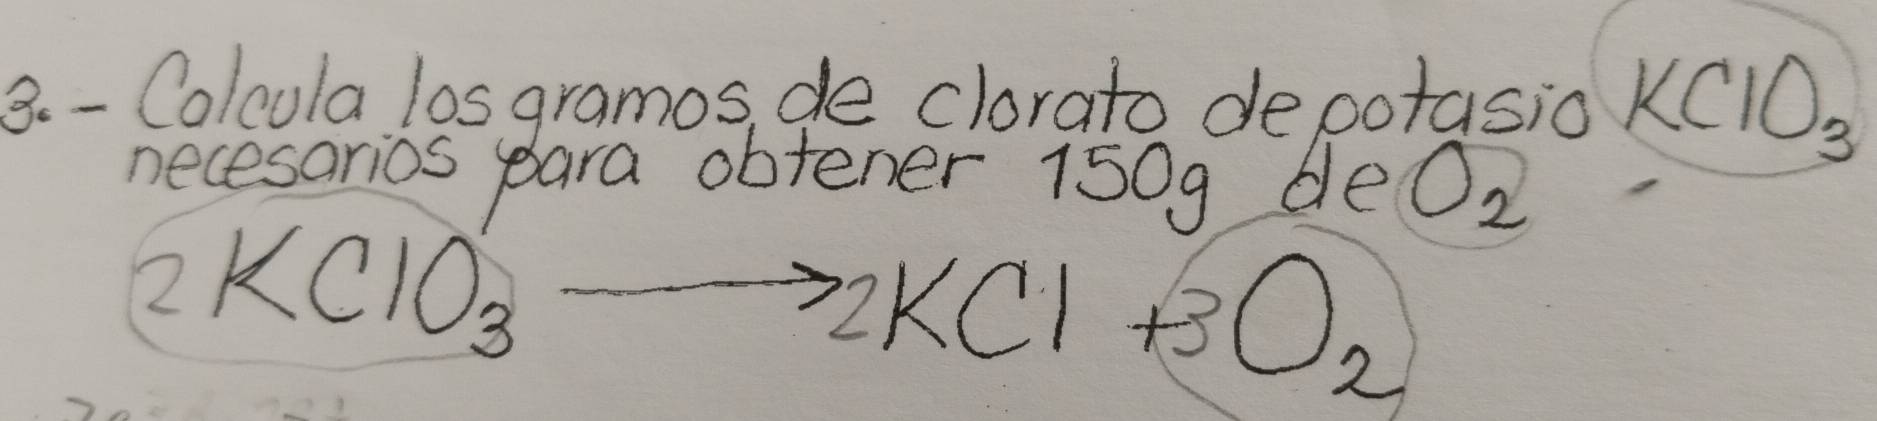 3.- Calcula los gramos de clorato de potasio KClO₃
necesarios para obtener 150g de O₂
2KClO₃ → 2KCl + 3O₂